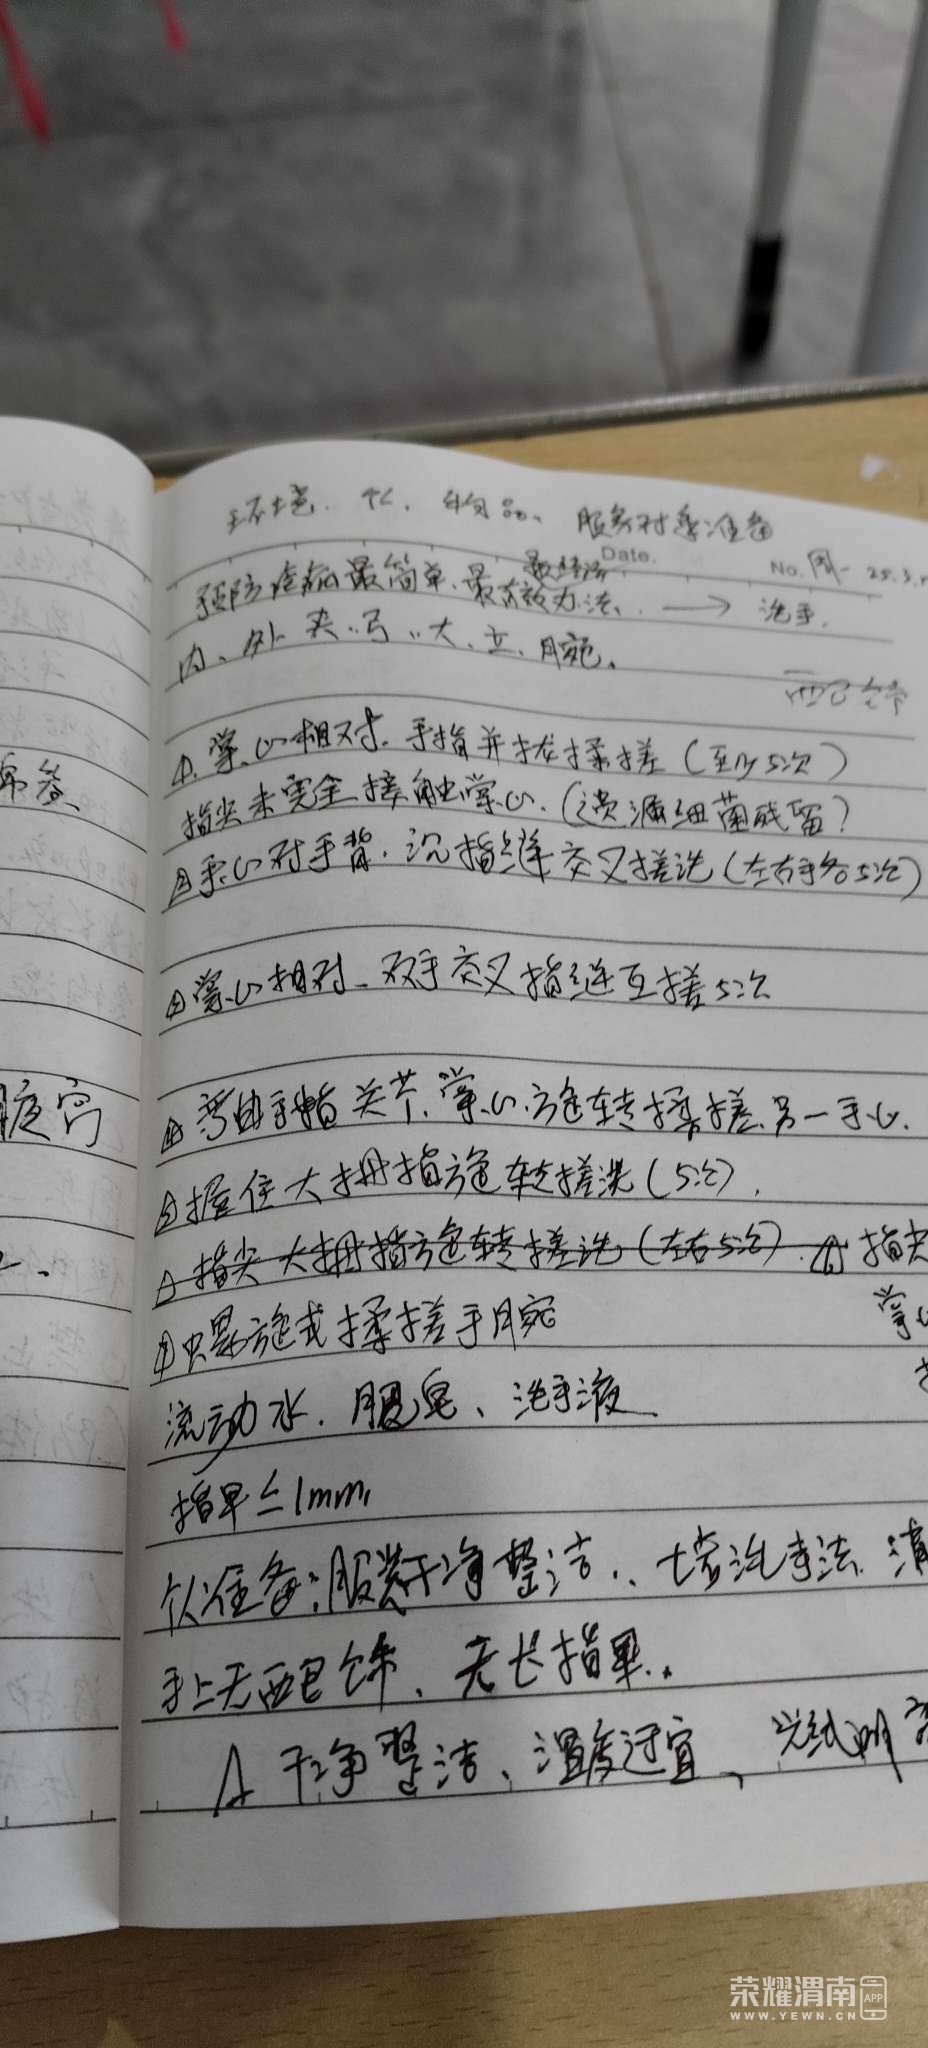 环境、个人、物品、服务对象准备
最经济
Date.
No. 周一 25.3.
预防疾病最简单、最有效办法、→ 洗手.
内、外、夹、弓、大、立、腕.
配饰
①掌心相对.手指并拢揉搓(至少5次)
指尖未完全接触掌心.(遗漏细菌残留?
②手心对手背.沉指缝交叉搓洗(左右手各5次)
③掌心相对、双手交叉指缝互搓5次
④弯曲手指关节、掌心.旋转揉搓.另一手心.
⑤握住大拇指旋转搓洗(5次).
指尖大拇指旋转搓洗(左右5次).⑥指尖
掌心
⑦螺旋式揉搓手腕
流动水.肥皂、洗手液
指甲≤1mm,
个人准备:服装干净整洁、七步洗手法.清
手上无配饰、无长指甲.
干净整洁、温度适宜、光线明亮
服
荣耀渭南 APP
WWW.YEWN.CN